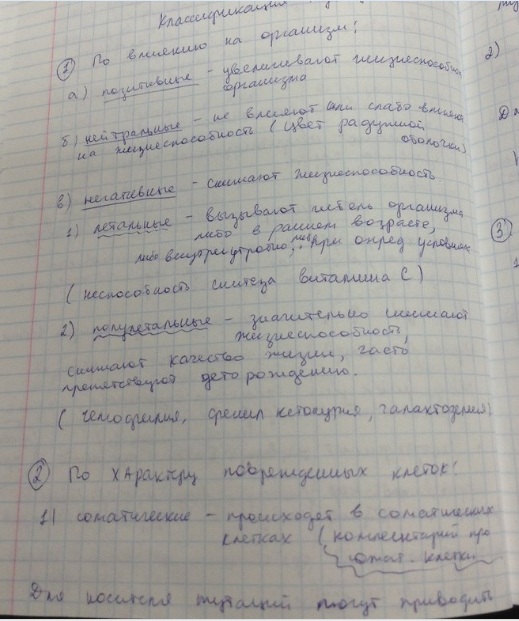 Классификация
① По влиянию на организм:
а) позитивные – увеличивают жизнеспособн
организма
б) нейтральные – не влияют или слабо влияют
на жизнеспособность (цвет радужной
оболочки)
в) негативные – снижают жизнеспособность
1) летальные – вызывают гибель организма
либо в раннем возрасте,
либо внутриутробно, либо при опред условиях
(неспособность синтеза витамина С)
2) полулетальные – значительно снижают
жизнеспособность,
снижают качество жизни, часто
препятствуют деторождению.
(гемофилия, фенилкетонурия, галактоземия)
② По характеру поврежденных клеток:
1) соматические – происходят в соматических
клетках (комментарий про
сомат. клетки
Для носителя мутаций могут приводить
2)
③